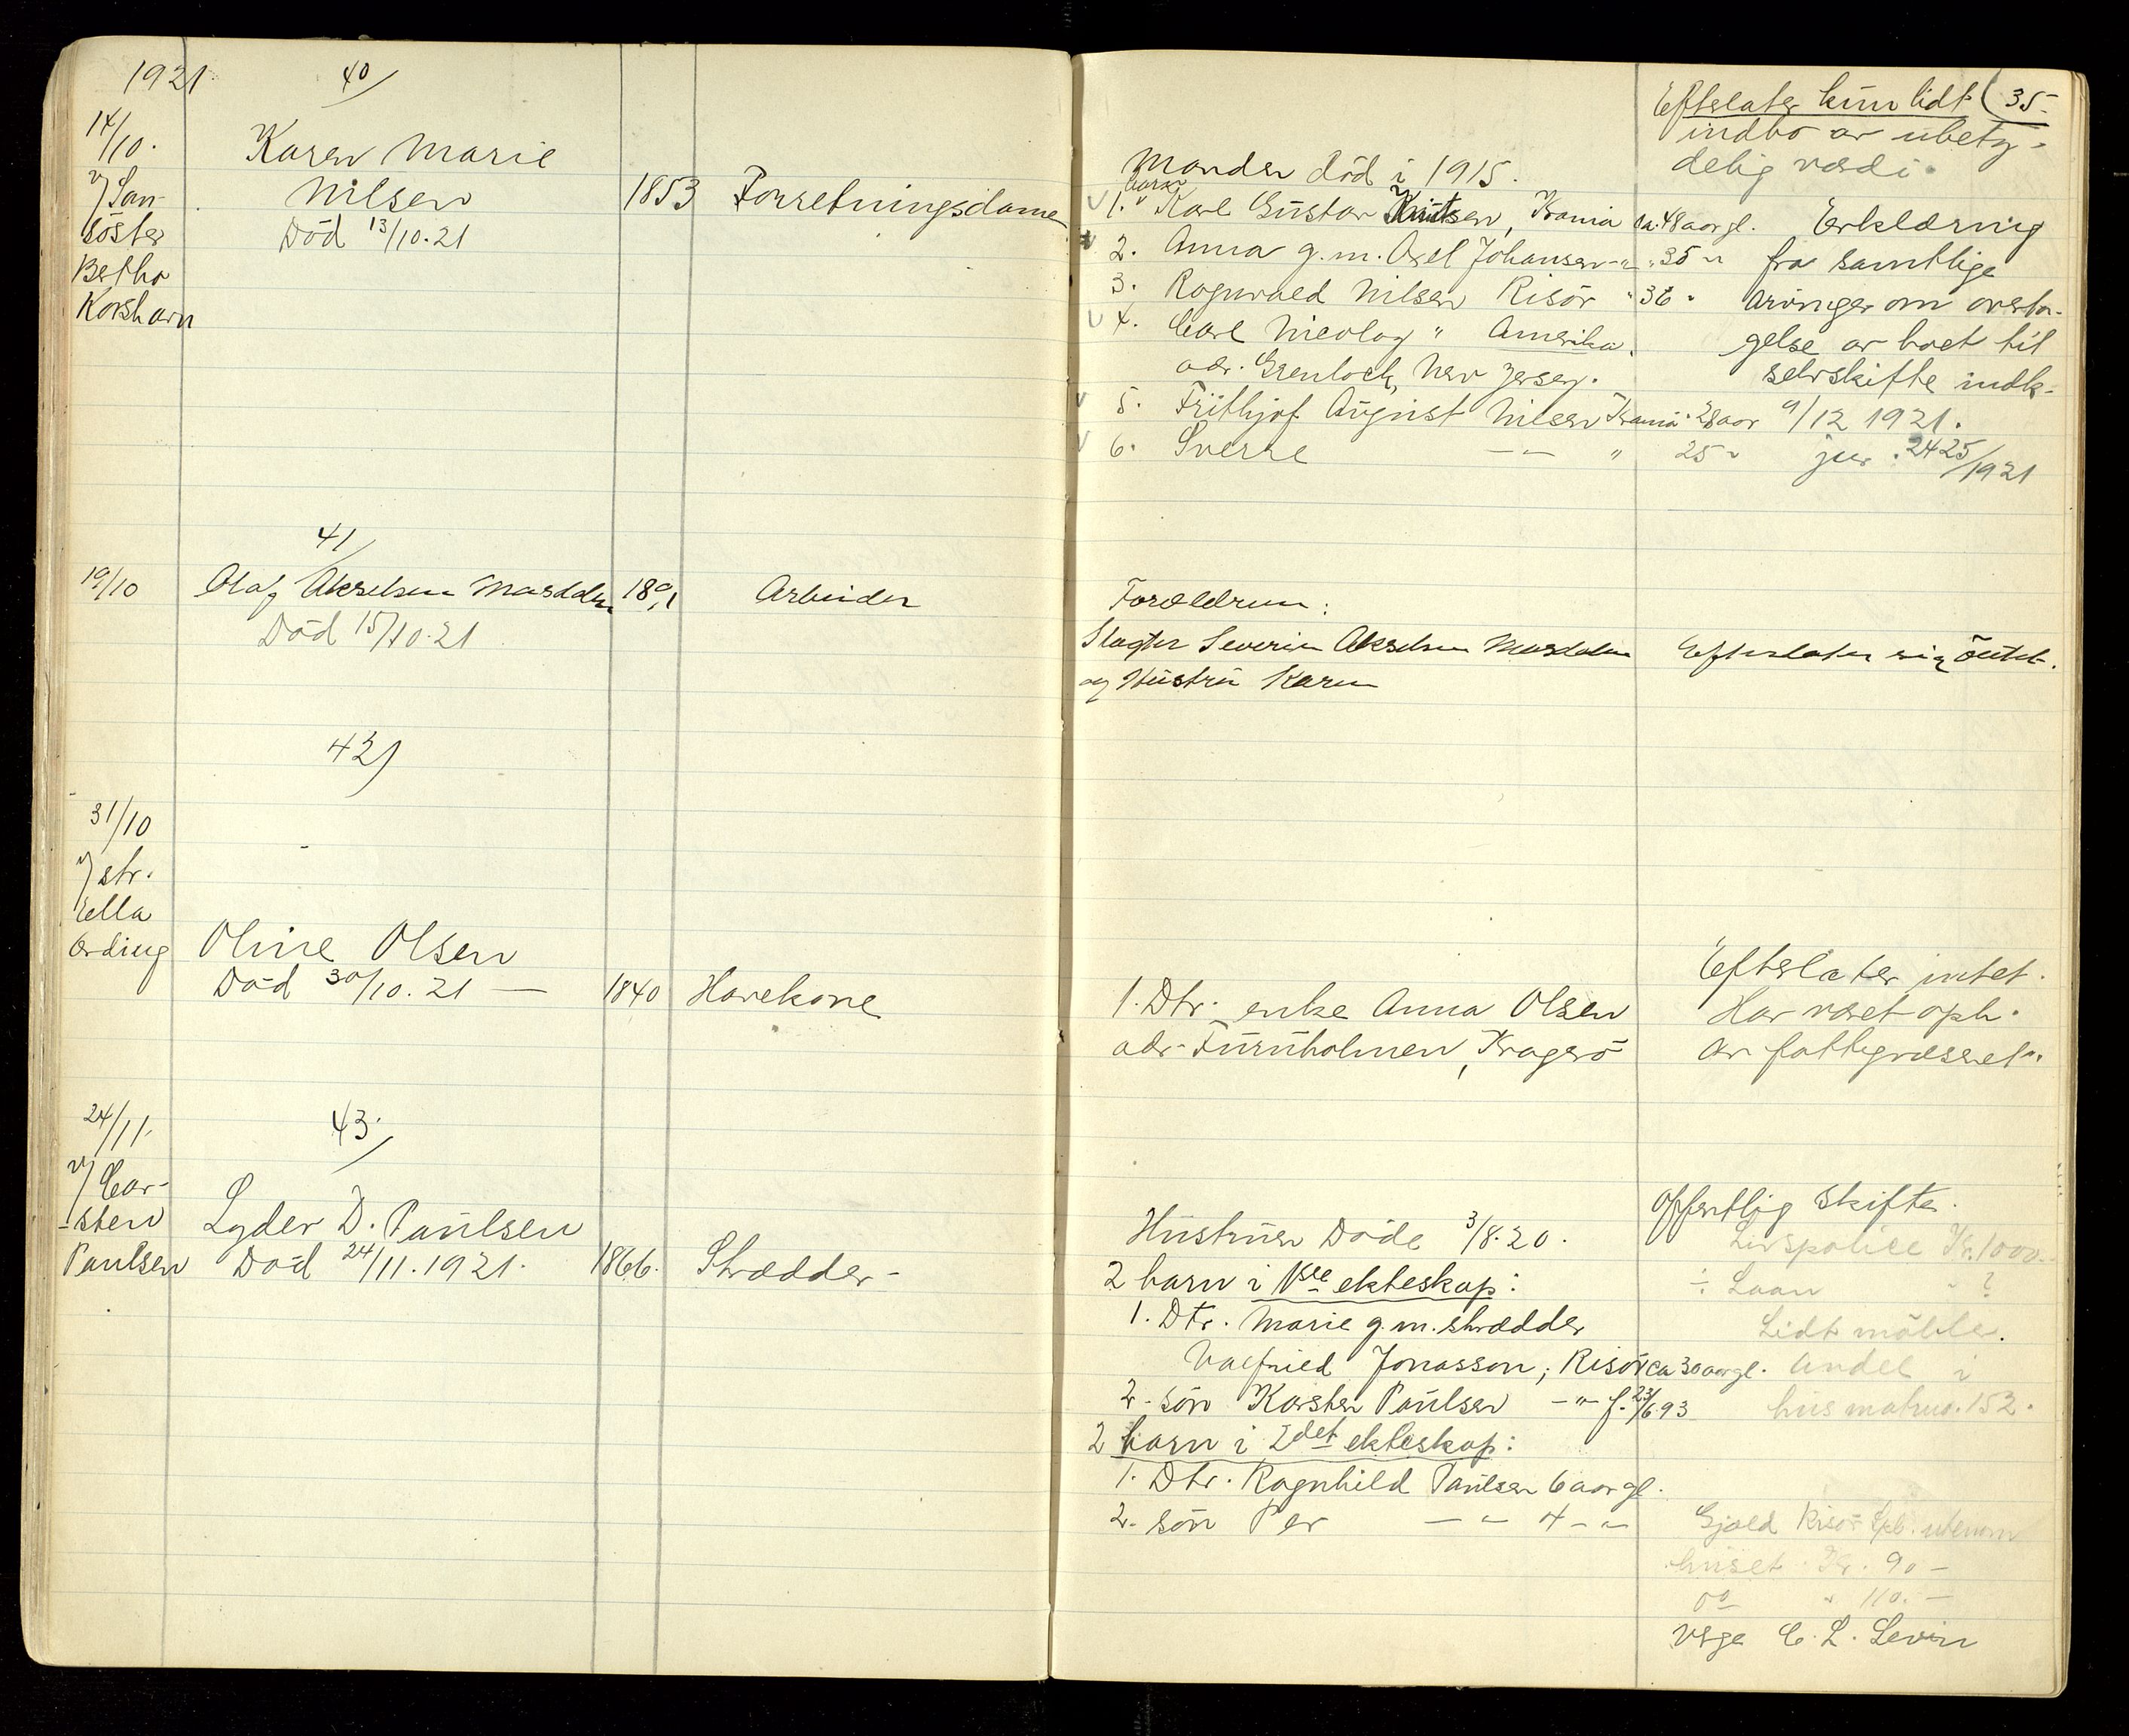 1921.
40/
14/10.
v/ San-
söster
Betha
Korshavn
Karen Marie
Nilsen
Död 13/10.21
1853
Forretningsdame
Manden död i 1915.
barn
1. Karl Gustav Knutsen, Krania ca. 48 aar gl.
2. Anna g.m. Axel Johansen -"- " 35 "
3. Ragnvald Nilsen Risör " 36 "
4. Carl Nicolay " Amerika.
adr. Grenloch, New Jersey.
5. Frithjof August Nilsen Krania 28 aar
6. Sverre -"- " 25 "
Efterlater kun lidt (35-
indbo av ubety-
delig værdi.
Erklæring
fra samtlige
arvinger om overta-
gelse av boet til
selvskifte indk.
9/12 1921.
jur. 2425/1921
41/
19/10
Olaf Akselsen Mardalen
Död 15/10.21
1891
Arbeider
Forældrene:
Slagter Severin Akselsen Mardalen
og Hustru Karen
Efterlater sig intet.
42)
31/10
v/ str.
Ella
Ording
Oline Olsen
Död 30/10.21 —
1840
Havekone
1. Dtr. enke Anna Olsen
adr. Furuholmen, Kragerö
Efterlater intet.
Har været oph.
av fattigvæsenet.
43/
24/11.
v/ Car-
-sten
Paulsen
Lyder D. Paulsen
Död 24/11.1921.
1866.
Skrædder-
Hustruen döde 3/8.20.
2 barn i 1ste ekteskap:
1. Dtr. Marie g.m. skrædder
Valfried Jonasson, Risör ca 30 aar gl.
2. sön Karsten Paulsen -"- f. 23/6.93
2 barn i 2det ekteskap:
1. Dtr. Ragnhild Paulsen 6 aar gl.
2. sön Per -"- 4 -"-
Offentlig skifte.
Livspolice Kr. 1000.-
÷ Laan " ?
Lidt möble.
Andel i
hus matrno. 152.
Gjæld Risör Spb. utenom
huset Kr. 90 -
do " 110. -
Vsge C. L. Levin